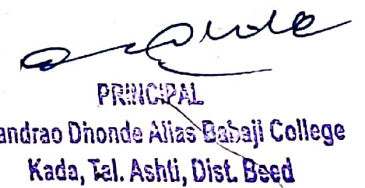 PRINCIPAL
andrao Dhonde Alias Babaji College
Kada, Tal. Ashti, Dist. Beed